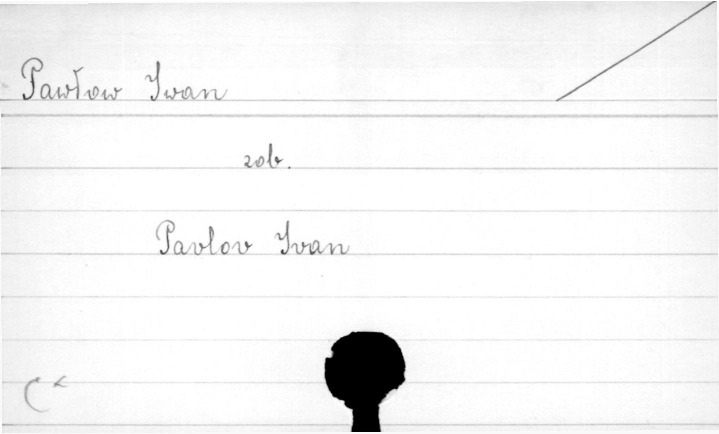 Pawłow Iwan
zob.
Pavlov Ivan